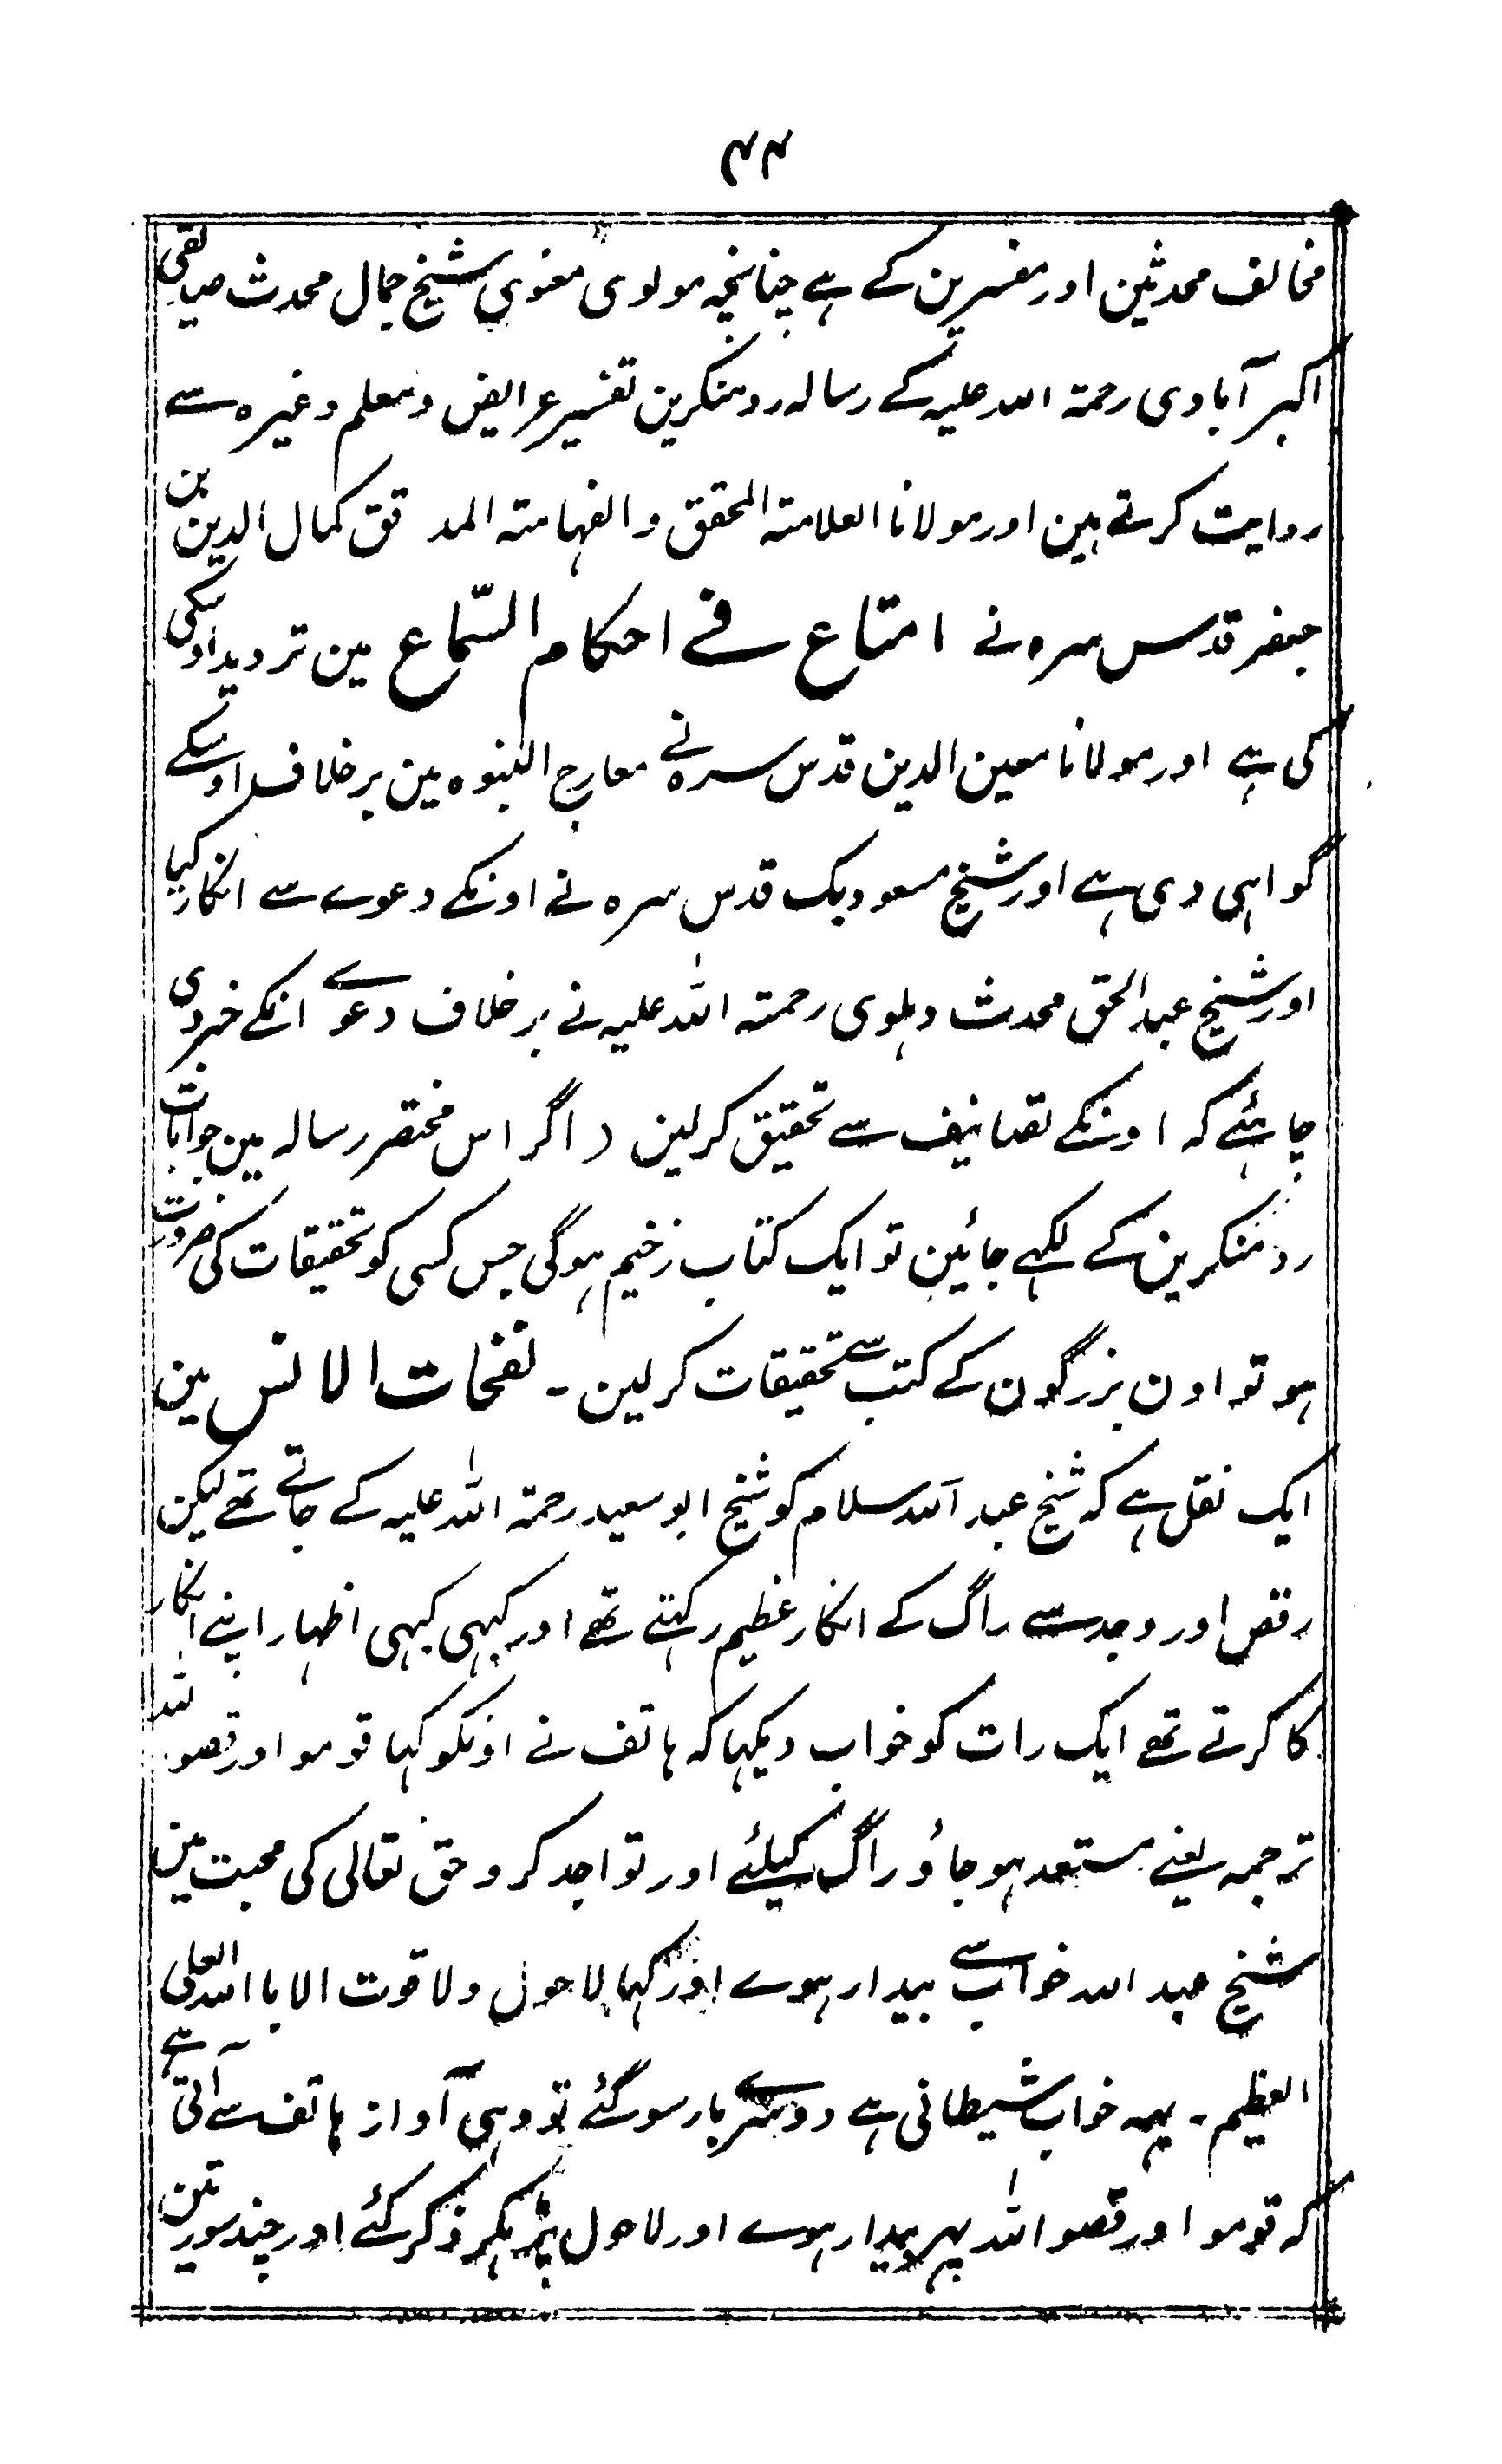 ۴۴
مخالف محدثین اور مفسرین کے ہے چنانچہ مولوی معنوی شیخ جمال محدث صدیقی
اکبر آبادی رحمۃ اللہ علیہ کے رسالہ رد منکرین تفسیر عرایض و معلم وغیرہ سے
روایت کرتے ہین اور مولانا العلامتہ المحقق والفہامتہ المدقق کمال الدین بن
جعفر قدس سرہ نے امتاع فے احکام السّماع مین تردید اوسکی
کی ہے اور مولانا معین الدین قدس سرہ نے معارج النبوہ مین برخلاف اوسکے
گواہی دی ہے اور شیخ مسعود بک قدس سرہ نے اونکے دعوے سے انکار کیا
اور شیخ عبدالحق محدث دہلوی رحمتہ اللہ علیہ نے برخلاف دعوے انکے خبر دی
چاہئے کہ اونکے تصانیف سے تحقیق کرلین ( اگر اس مختصر رسالہ مین جوابات
رد منکرین کے لکہے جائین تو ایک کتاب زخیم ہوگی جس کسی کو تحقیقات کی ضرورت
ہو تو اون بزرگون کے کتب سے تحقیقات کرلین ۔ نفحات الانس مین
ایک نقل ہے کہ شیخ عبد اللہ سلام کو شیخ ابو سعید رحمۃ اللہ علیہ کے جاتے تھے لیکن
رقص اور وجد سے راگ کے انکار عظیم رکہتے تھے اور کبہی کبہی اظہار اپنے انکار
کا کرتے تھے ایک رات کو خواب دیکہا کہ ہاتف نے اونکو کہا قوموا ورقصو للہ
ترجمہ یعنے مستعد ہوجاؤ راگ کیلئے اور تواجد کرو حق تعالی کی محبت مین
شیخ عبد اللہ خواب سے بیدار ہوے اور کہا لا حول ولا قوت الا باللہ العلی
العظیم ۔ یہہ خواب شیطانی ہے دوسرے بار سوگئے تو وہی آواز ہاتف سے آتی ہے
کہ قوموا ورقصو اللہ پہر بیدار ہوے اور لاحول پڑہکر ذکر کئے اور چند سورتین